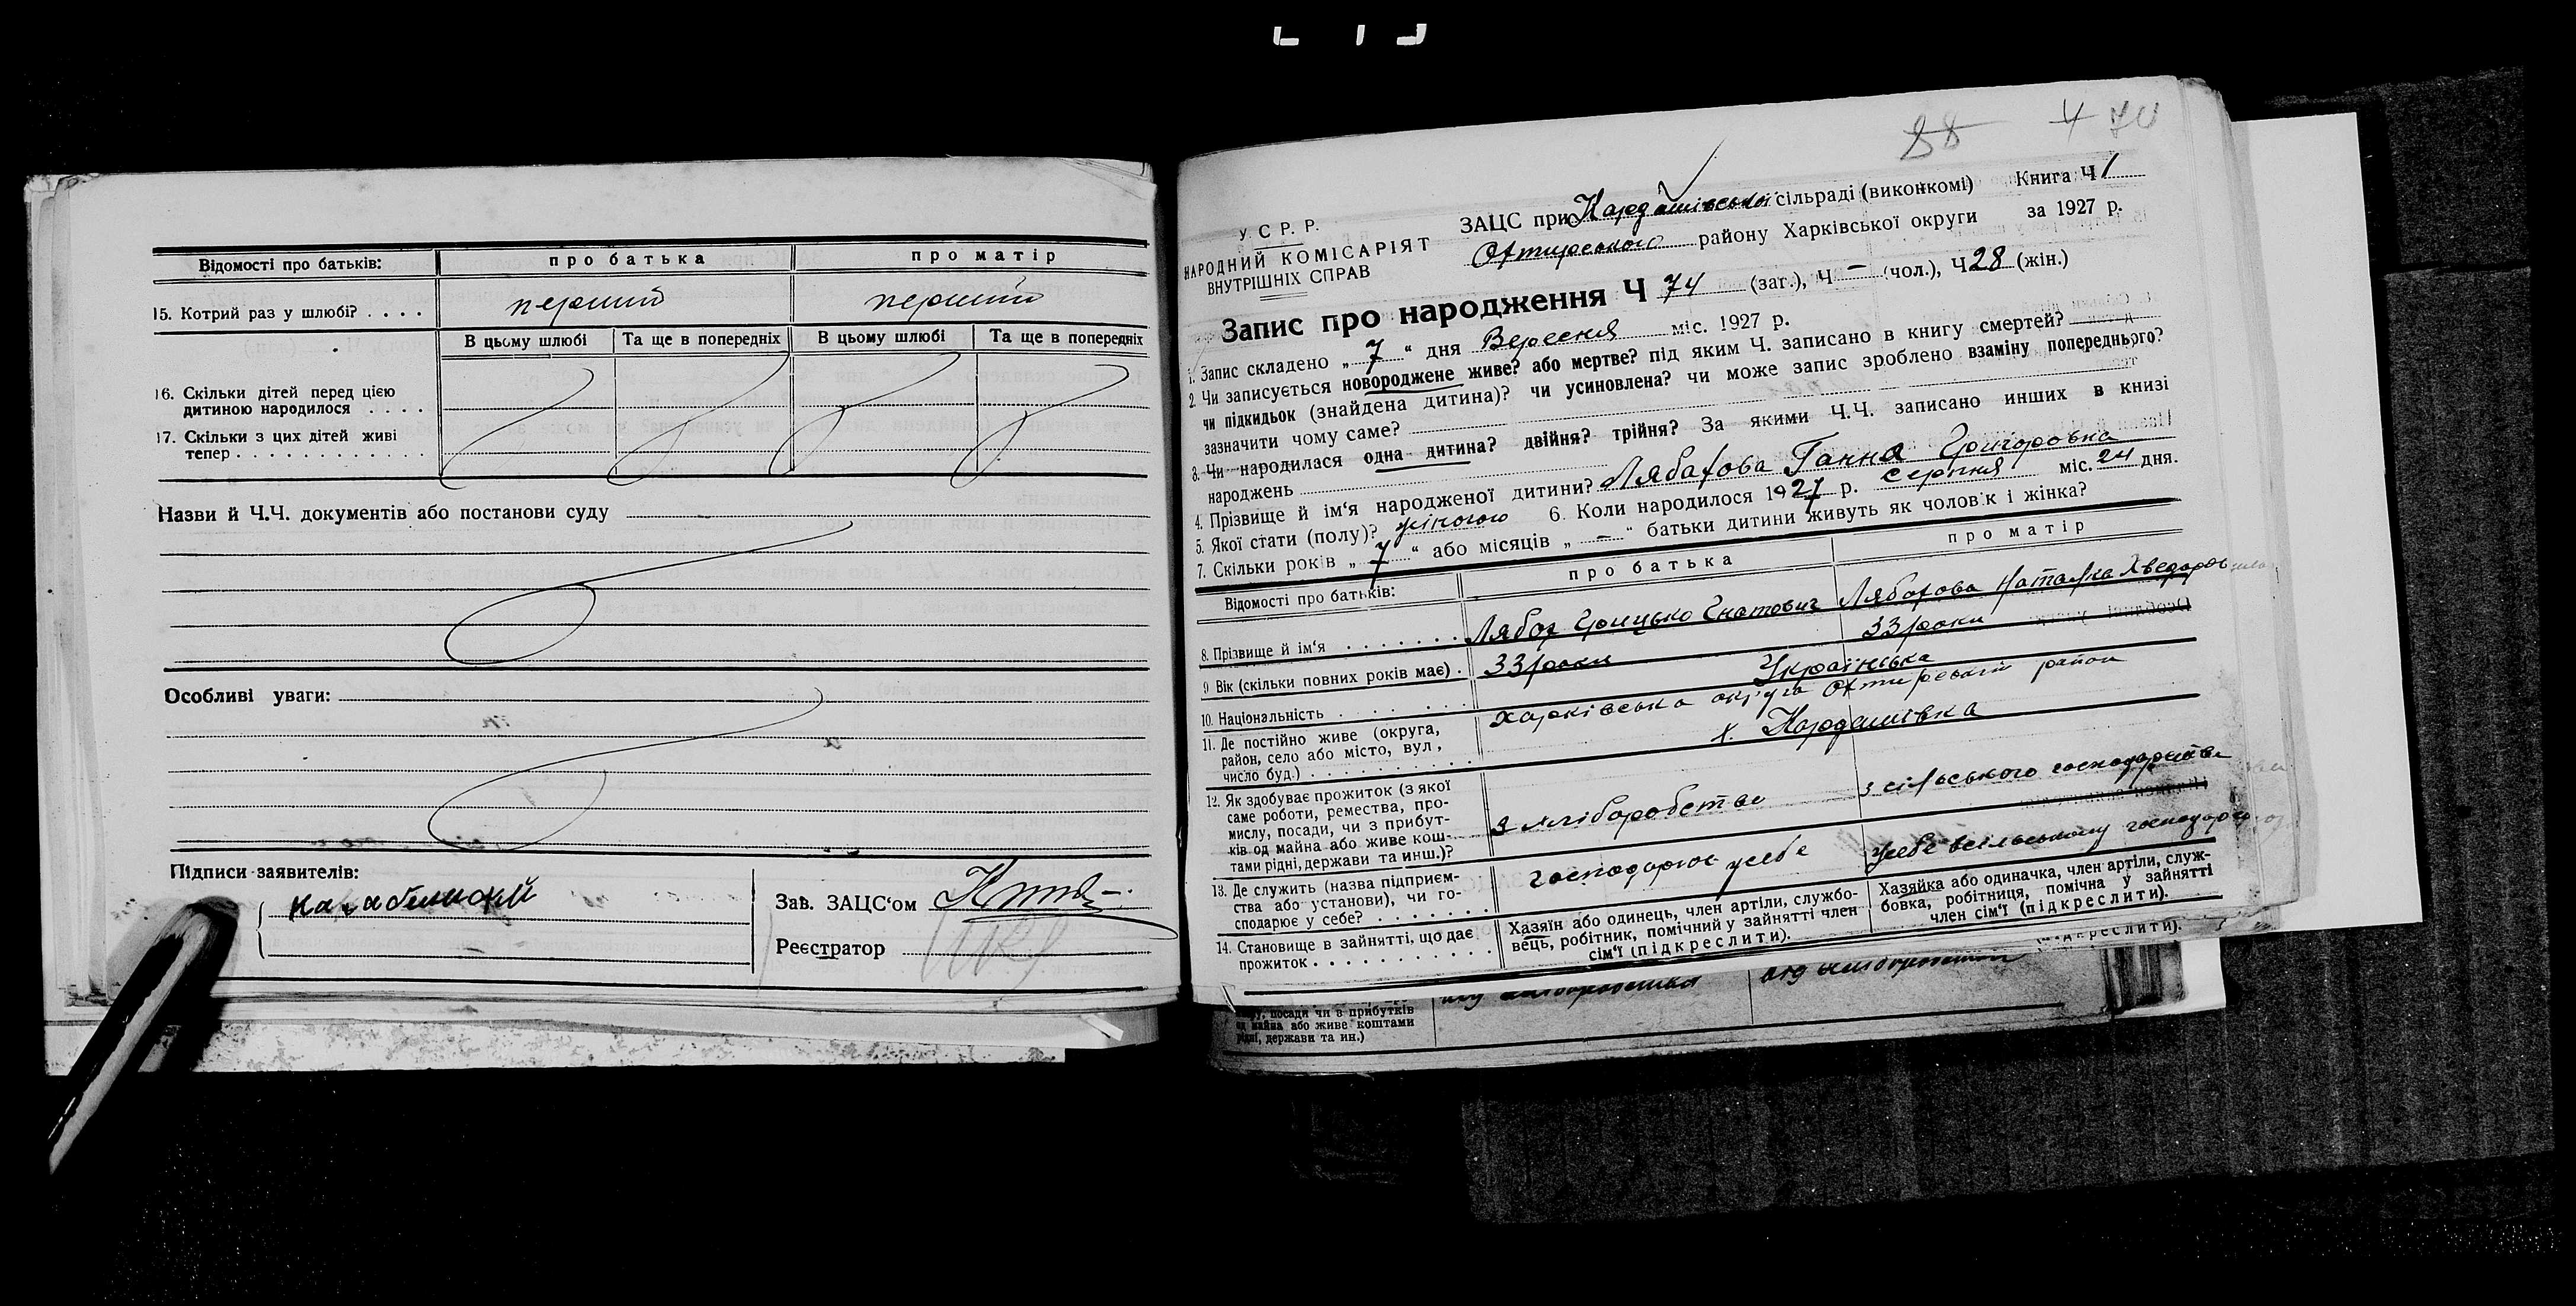 Відомості про батьків: про батька про матір
15. Котрий раз у шлюбі? . . . . перший перший
В цьому шлюбі Та ще в попередніх В цьому шлюбі Та ще в попередніх
16. Скільки дітей перед цією
дитиною народилося . . . .
17. Скільки з цих дітей живі
тепер . . . . . . . . . . . .
Назви й Ч.Ч. документів або постанови суду
Особливі уваги:
Підписи заявителів:
Зав. ЗАЦС‘ом
Реєстратор
88 4 74
У. С Р. Р.
НАРОДНИЙ КОМІСАРІЯТ
ВНУТРІШНІХ СПРАВ
ЗАЦС при Кардашівській сільраді (виконкомі) Книга Ч 1
Охтирського району Харківської округи за 1927 р.
Запис про народження Ч 74 (заг.), Ч — (чол.), Ч 28 (жін.)
1. Запис складено „ 7 “ дня Вересня міс. 1927 р.
2. Чи записується новороджене живе? або мертве? під яким Ч. записано в книгу смертей?
чи підкидьок (знайдена дитина)? чи усиновлена? чи може запис зроблено взаміну попереднього?
зазначити чому саме?
3. Чи народилася одна дитина? двійня? трійня? За якими Ч.Ч. записано инших в книзі
народжень
4. Прізвище й ім‘я народженої дитини? Лябахова Ганна Григоровна
5. Якої стати (полу)? жіногою 6. Коли народилося 1927 р. серпня міс. 24 дня.
7. Скільки років „ 7 “ або місяців „ — “ батьки дитини живуть як чоловік і жінка?
Відомості про батьків: про батька про матір
8. Прізвище й ім‘я . . . . . . . Лябах Грицько Гнатович Лябахова Наталка Хведоровна
9 Вік (скільки повних років має) . 33 роки 33 роки
10. Національність . . . . . . Українська
11. Де постійно живе (округа,
район, село або місто, вул,
число буд.) . . . . . . . . . . Харківська округа Охтирський район
х. Кардашівка
12. Як здобуває прожиток (з якої
саме роботи, ремества, про-
мислу, посади, чи з прибут-
ків од майна або живе кош-
тами рідні, держави та инш.)? з хліборобства з сільського господарства
13. Де служить (назва підприєм-
ства або установи), чи го-
сподарює у себе? . . . . . . . господарює у себе у себе в сільському
14. Становище в зайнятті, що дає
прожиток . . . . . . . . . . . .
Хазяїн або одинець, член артіли, службо-
вець, робітник, помічний у зайнятті член
сім‘ї (підкреслити).
Хазяйка або одиначка, член артіли, служ-
бовка, робітниця, помічна у зайнятті
член сім‘ї (підкреслити).
(підкреслити).
посади чи з прибутків
майна або живе коштами
держави та ин.)